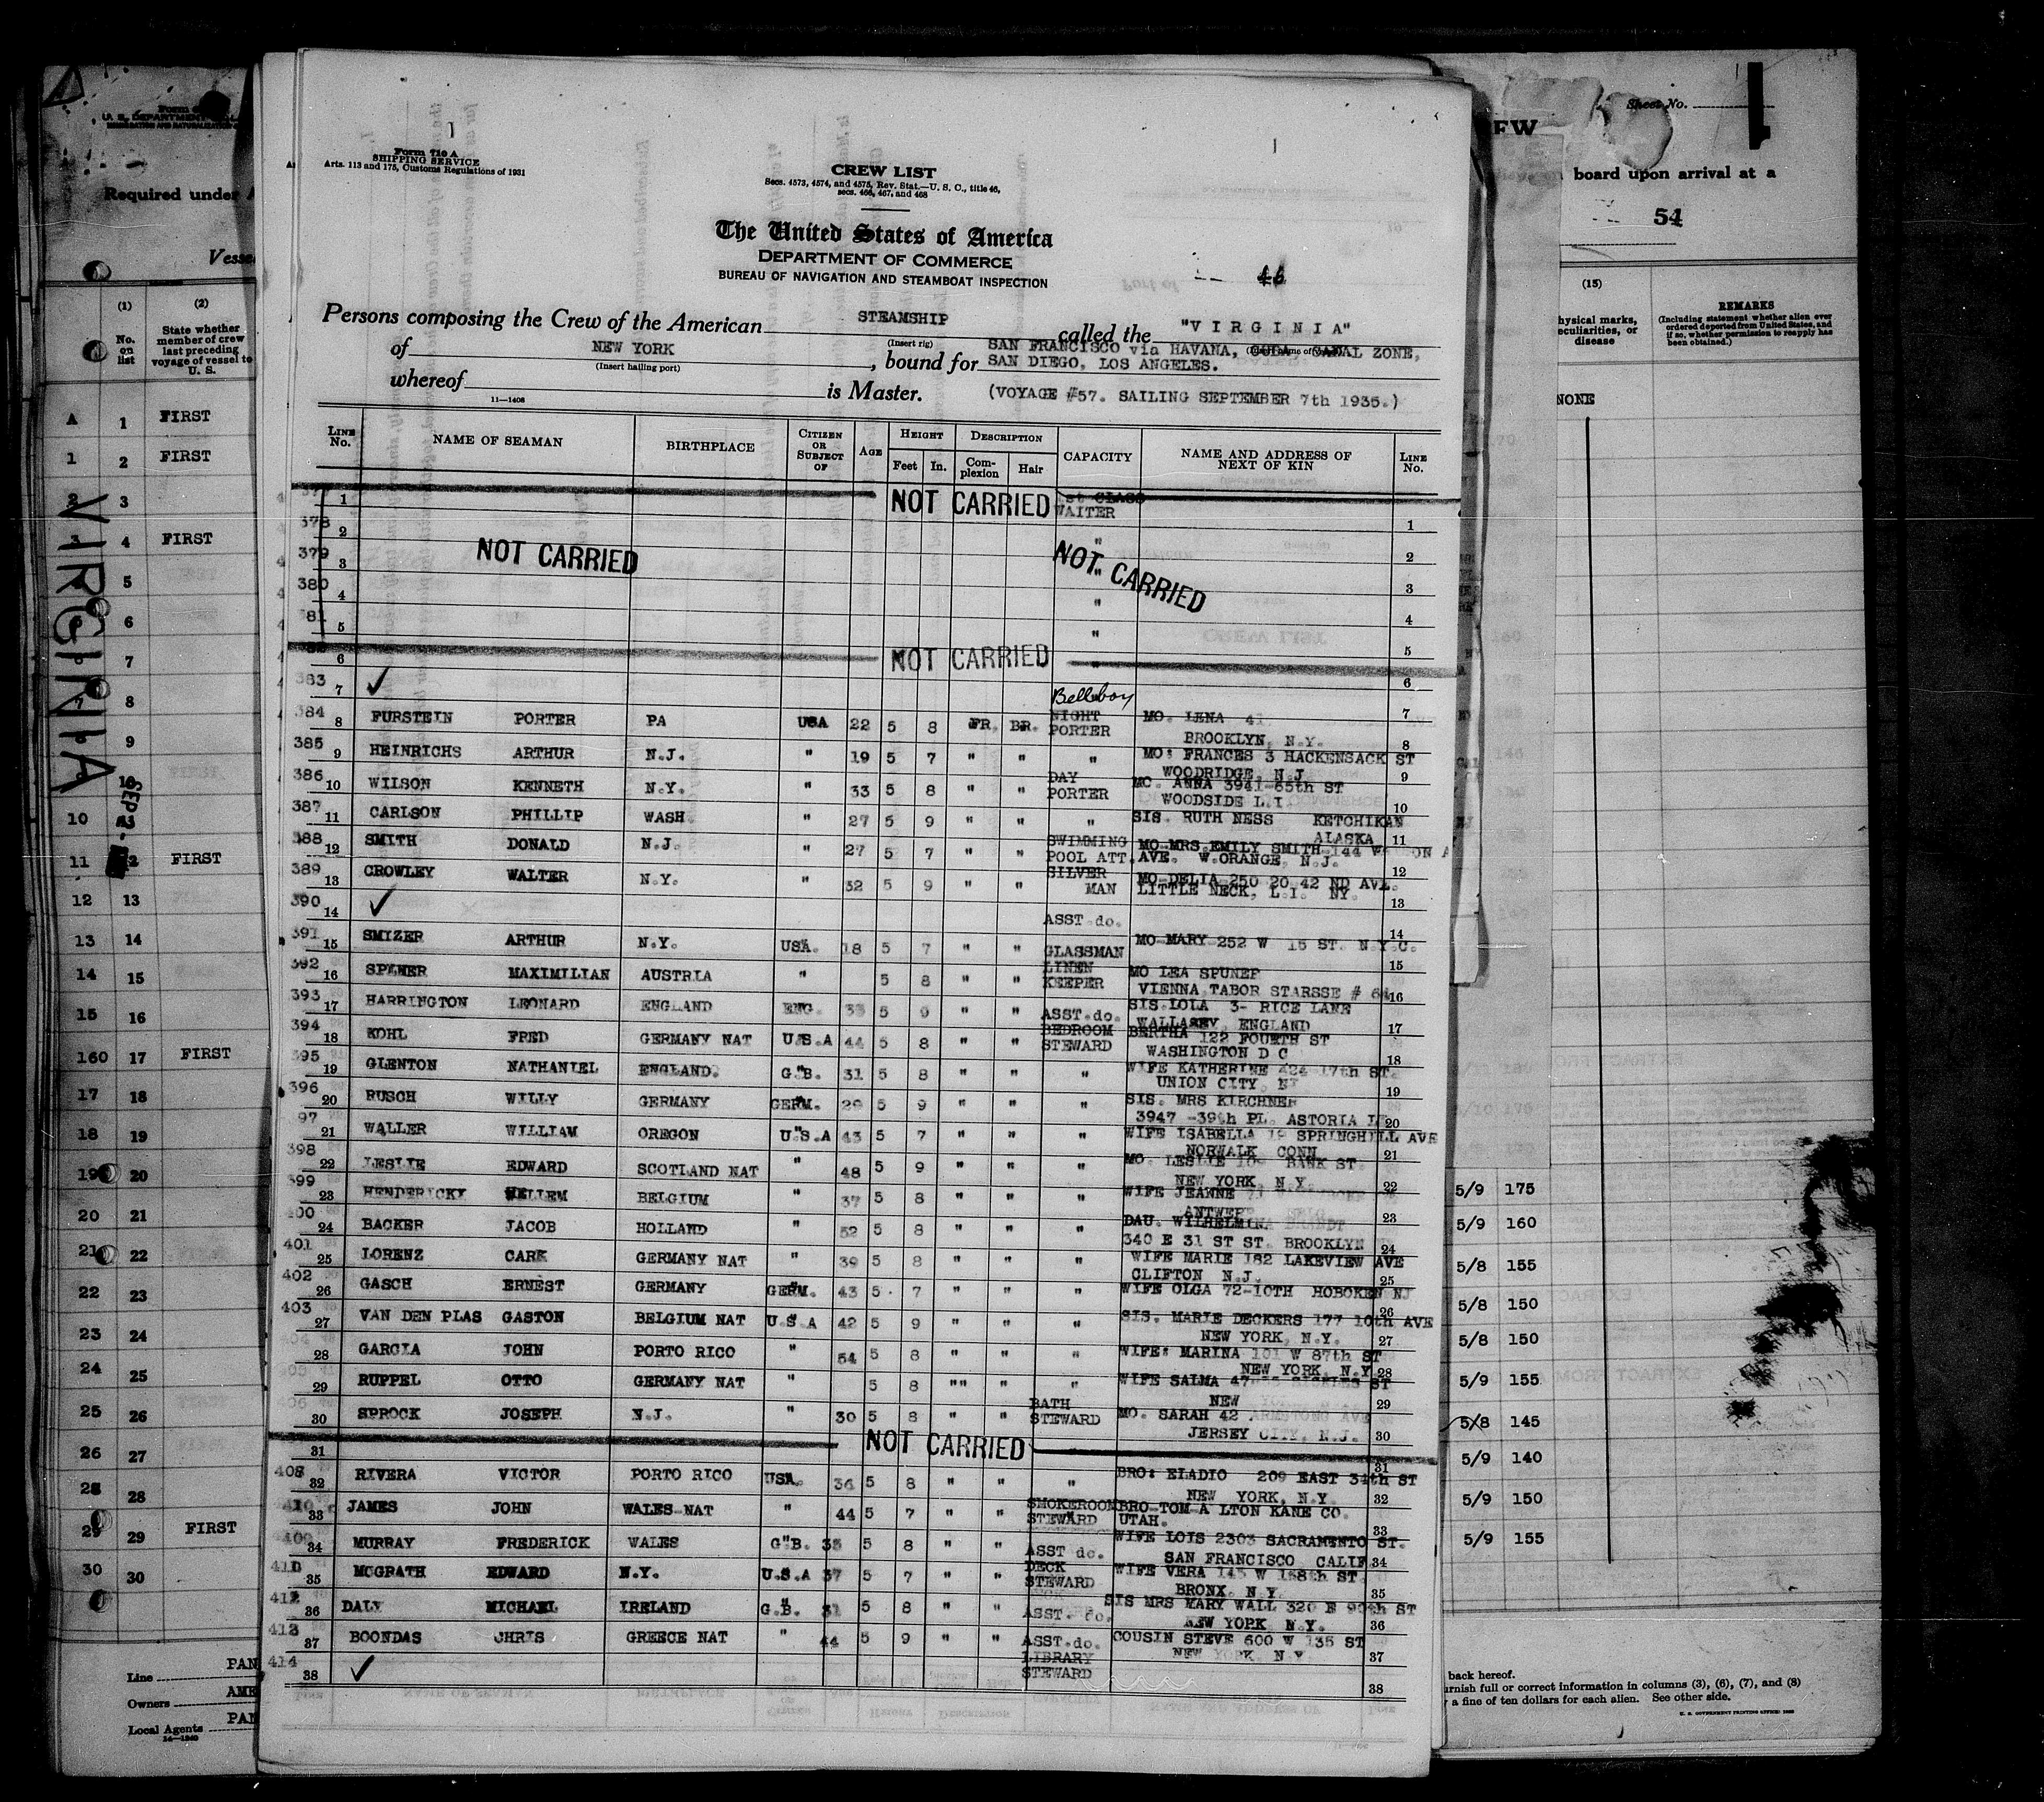 Form 710 A
SHIPPING SERVICE
Arts. 113 and 175, Customs Regulations of 1931
CREW LIST
Secs. 4573, 4574, and 4575, Rev. Stat.—U. S. C., title 46,
secs. 466, 467, and 468
The United States of America
DEPARTMENT OF COMMERCE
BUREAU OF NAVIGATION AND STEAMBOAT INSPECTION
Persons composing the Crew of the American STEAMSHIP called the "VIRGINIA"
(Insert rig)
of NEW YORK, bound for SAN FRANCISCO via HAVANA, CANAL ZONE,
(Insert hailing port) SAN DIEGO, LOS ANGELES.
whereof is Master. (VOYAGE #57. SAILING SEPTEMBER 7th 1935.)
11—1408
LINE No. NAME OF SEAMAN BIRTHPLACE CITIZEN OR SUBJECT OF AGE HEIGHT Feet In. DESCRIPTION Complexion Hair CAPACITY NAME AND ADDRESS OF NEXT OF KIN LINE No.
1 NOT CARRIED 1st CLASS WAITER 1
378 2 " 2
379 3 NOT CARRIED " NOT CARRIED 3
380 4 " 4
81 5 " 5
6 NOT CARRIED " 6
383 7 ✓ Bellboy 7
384 8 FURSTEIN PORTER PA USA 22 5 8 FR. BR. NIGHT PORTER MO. LENA BROOKLYN, N.Y. 8
385 9 HEINRICHS ARTHUR N.J. " 19 5 7 " " " MO: FRANCES 3 HACKENSACK ST WOODRIDGE, N.J. 9
386 10 WILSON KENNETH N.Y. " 33 5 8 " " DAY PORTER MO. ANNA 3941-65th ST WOODSIDE L.I. 10
387 11 CARLSON PHILLIP WASH. " 27 5 9 " " " SIS. RUTH NESS KETCHIKAN ALASKA 11
388 12 SMITH DONALD N.J. " 27 5 7 " " SWIMMING POOL ATT. MO MRS.EMILY SMITH 144 AVE. W.ORANGE, N.J. 12
389 13 CROWLEY WALTER N.Y. " 32 5 9 " " SILVER MAN MO DELIA 250 20 42 ND AVE. LITTLE NECK, L.I. NY. 13
390 14 ✓ ASST do. 14
391 15 SMIZER ARTHUR N.Y. USA. 18 5 7 " " GLASSMAN MO MARY 252 W 15 ST. N.Y.C. 15
392 16 MAXIMILIAN AUSTRIA " 5 8 " " LINEN KEEPER MO LEA VIENNA TABOR STARSSE # 16
393 17 HARRINGTON LEONARD ENGLAND ENG. 33 5 9 " " ASST.do. SIS LOLA 3- RICE LANE WALLASEY, ENGLAND 17
394 18 KOHL FRED GERMANY NAT U.S.A 44 5 8 " " BEDROOM STEWARD BERTHA 122 FOURTH ST WASHINGTON D C 18
395 19 GLENTON NATHANIEL ENGLAND. G.B. 31 5 8 " " " WIFE KATHERINE 424 17th ST. UNION CITY, NJ 19
396 20 RUSCH WILLY GERMANY GERM. 29 5 9 " " " SIS. MRS KIRCHNER 3947 -39th PL. ASTORIA 20
97 21 WALLER WILLIAM OREGON U.S.A 43 5 7 " " " WIFE ISABELLA 19 SPRINGHILL AVE NORWALK CONN 21
398 22 LESLIE EDWARD SCOTLAND NAT " 48 5 9 " " " MO. LESLIE BANK ST. NEW YORK, N.Y. 22
399 23 HENDERICKY BELGIUM " 37 5 8 " " " WIFE JEANNE ANTWERP 23
400 24 BACKER JACOB HOLLAND " 52 5 8 " " " DAU. WILHELMINA BRANDT 340 E 31 ST ST. BROOKLYN 24
401 25 LORENZ CARK GERMANY NAT " 39 5 8 " " " WIFE MARIE 182 LAKEVIEW AVE CLIFTON N.J. 25
402 26 GASCH ERNEST GERMANY GERM. 43 5 7 " " " WIFE OLGA 72-10TH HOBOKEN NJ 26
403 27 VAN DEN PLAS GASTON BELGIUM NAT U.S.A 42 5 9 " " " SIS. MARIE DECKERS 177 10th AVE NEW YORK, N.Y. 27
404 28 GARCIA JOHN PORTO RICO " 54 5 8 " " " WIFE: MARINA 101 W 87th ST NEW YORK, N.Y. 28
405 29 RUPPEL OTTO GERMANY NAT " 5 8 "" " " WIFE SALMA ST NEW 29
406 30 SPROCK JOSEPH N.J. " 30 5 8 " " BATH STEWARD MO. SARAH 42 ARMSTRONG AVE JERSEY CITY, N.J. 30
31 NOT CARRIED 31
408 32 RIVERA VICTOR PORTO RICO USA. 36 5 8 " " " BRO: ELADIO 209 EAST 34th ST NEW YORK, N.Y. 32
33 JAMES JOHN WALES NAT " 44 5 7 " " SMOKEROOM STEWARD BRO TOM A LTON KANE CO. UTAH. 33
34 MURRAY FREDERICK WALES G.B. 35 5 8 " " ASST do. WIFE LOIS 2303 SACRAMENTO ST. SAN FRANCISCO CALIF 34
35 MCGRATH EDWARD N.Y. U.S.A 37 5 7 " " DECK STEWARD WIFE VERA W 168th ST. BRONX, N.Y. 35
412 36 DALY MICHAEL IRELAND G.B. 31 5 8 " " ASST. do. SIS MRS MARY WALL 320 E 90th ST NEW YORK N.Y. 36
413 37 BOONDAS CHRIS GREECE NAT " 44 5 9 " " ASST.do. COUSIN STEVE 600 W 135 ST NEW YORK, N.Y. 37
414 38 ✓ LIBRARY STEWARD 38
Required under
(1) No. on list
(2) State whether member of crew last preceding voyage of vessel to U. S.
A 1 FIRST
1 2 FIRST
2 3
3 4 FIRST
5
6
7
7 8
9
10
10
11 FIRST
12 13
13 14
14 15
15 16
160 17 FIRST
17 18
18 19
19 20
20 21
21 22
22 23
23 24
24 25
25 26
26 27
28 28
29 29 FIRST
30 30
VIRGINIA
Line PAN
Owners AME
Local Agents PAN
14—1240
Sheet No.
board upon arrival at a
54
(15)
physical marks, peculiarities, or disease
REMARKS
(Including statement whether alien ever ordered deported from United States, and if so, whether permission to reapply has been obtained.)
NONE
5/9 175
5/9 160
5/8 155
5/8 150
5/8 150
5/9 155
5/8 145
5/9 140
5/9 150
5/9 155
back hereof.
furnish full or correct information in columns (3), (6), (7), and (8)
a fine of ten dollars for each alien. See other side.
U. S. GOVERNMENT PRINTING OFFICE